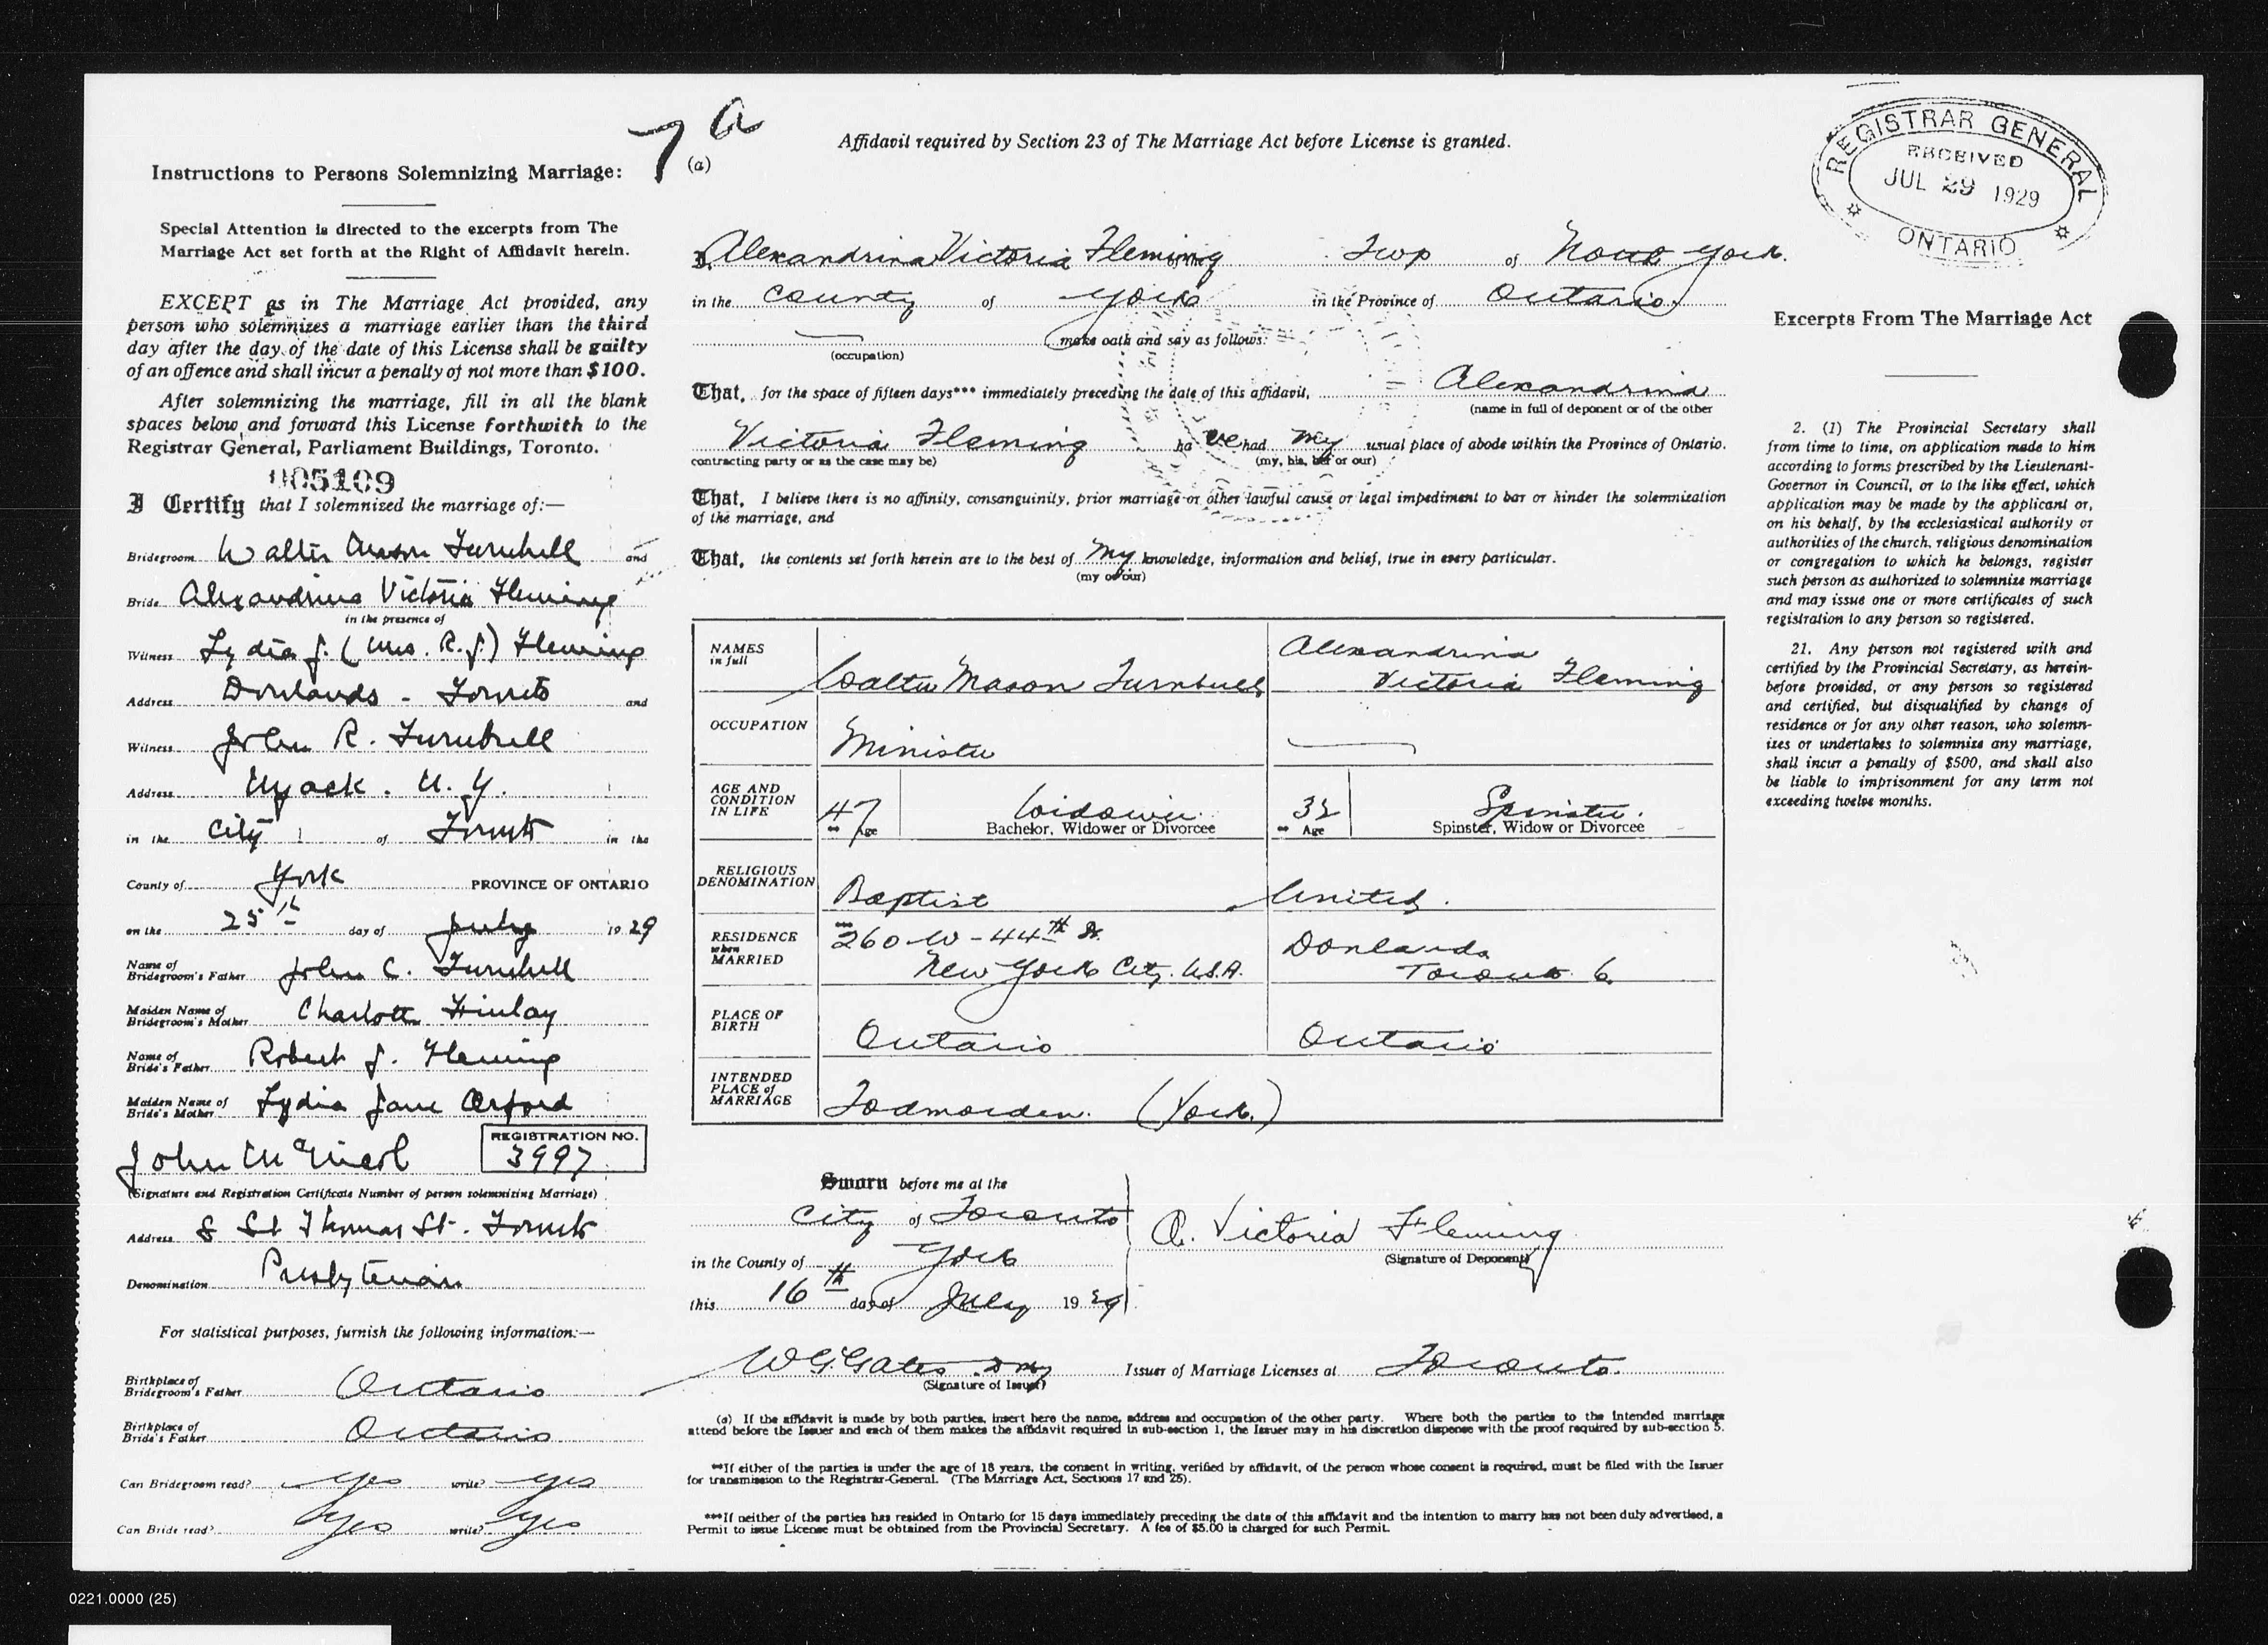 7 a
Instructions to Persons Solemnizing Marriage:
Special Attention is directed to the excerpts from The
Marriage Act set forth at the Right of Affidavit herein.
EXCEPT as in The Marriage Act provided, any
person who solemnizes a marriage earlier than the third
day after the day of the date of this License shall be guilty
of an offence and shall incur a penalty of not more than $100.
After solemnizing the marriage, fill in all the blank
spaces below and forward this License forthwith to the
Registrar General, Parliament Buildings, Toronto.
005109
I Certify that I solemnized the marriage of:—
Bridegroom Walter Mason Turnbull and
Bride Alexandrina Victoria Fleming
in the presence of
Witness Lydia J. (Mrs. R. J.) Fleming
Address Donlands - Toronto and
Witness John R. Turnbull
Address Nyack. N. Y.
in the City of Toronto in the
County of York PROVINCE OF ONTARIO
on the 25th day of July 1929
Name of Bridegroom's Father John C. Turnbull
Maiden Name of Bridegroom's Mother Charlotte Finlay
Name of Bride's Father Robert J. Fleming
Maiden Name of Bride's Mother Lydia Jane Orford
John McNicol REGISTRATION NO. 3997
(Signature and Registration Certificate Number of person solemnizing Marriage)
Address 8 St Thomas St. Toronto
Denomination Presbyterian
For statistical purposes, furnish the following information:—
Birthplace of Bridegroom's Father Ontario
Birthplace of Bride's Father Ontario
Can Bridegroom read? Yes write? Yes
Can Bride read? Yes write? Yes
Affidavit required by Section 23 of The Marriage Act before License is granted.
(a)
I, Alexandrina Victoria Fleming of the Twp of North York.
in the County of York in the Province of Ontario
(occupation) make oath and say as follows:
That, for the space of fifteen days*** immediately preceding the date of this affidavit, Alexandrina
(name in full of deponent or of the other
Victoria Fleming have had my usual place of abode within the Province of Ontario.
contracting party or as the case may be) (my, his, her or our)
That, I believe there is no affinity, consanguinity, prior marriage or other lawful cause or legal impediment to bar or hinder the solemnization
of the marriage, and
That, the contents set forth herein are to the best of my knowledge, information and belief, true in every particular.
(my or our)
NAMES in full Walter Mason Turnbull Alexandrina Victoria Fleming
OCCUPATION Minister
AGE AND CONDITION IN LIFE 47 Widower 32 Spinster.
** Age Bachelor, Widower or Divorcee ** Age Spinster, Widow or Divorcee
RELIGIOUS DENOMINATION Baptist United.
RESIDENCE when MARRIED 260 W - 44th St. New York City, U.S.A. Donlands Toronto 6
PLACE OF BIRTH Ontario Ontario
INTENDED PLACE of MARRIAGE Todmorden. (York.)
Sworn before me at the
City of Toronto
in the County of York
this 16th day of July 1929
A. Victoria Fleming
(Signature of Deponent)
W G Gates Issuer of Marriage Licenses at Toronto.
(Signature of Issuer)
(a) If the affidavit is made by both parties, insert here the name, address and occupation of the other party. Where both the parties to the intended marriage
attend before the Issuer and each of them makes the affidavit required in sub-section 1, the Issuer may in his discretion dispense with the proof required by sub-section 5.
**If either of the parties is under the age of 18 years, the consent in writing, verified by affidavit, of the person whose consent is required, must be filed with the Issuer
for transmission to the Registrar-General. (The Marriage Act, Sections 17 and 25).
***If neither of the parties has resided in Ontario for 15 days immediately preceding the date of this affidavit and the intention to marry has not been duly advertised, a
Permit to issue License must be obtained from the Provincial Secretary. A fee of $5.00 is charged for such Permit.
REGISTRAR GENERAL
RECEIVED
JUL 29 1929
ONTARIO
Excerpts From The Marriage Act
2. (1) The Provincial Secretary shall
from time to time, on application made to him
according to forms prescribed by the Lieutenant-
Governor in Council, or to the like effect, which
application may be made by the applicant or,
on his behalf, by the ecclesiastical authority or
authorities of the church, religious denomination
or congregation to which he belongs, register
such person as authorized to solemnize marriage
and may issue one or more certificates of such
registration to any person so registered.
21. Any person not registered with and
certified by the Provincial Secretary, as herein-
before provided, or any person so registered
and certified, but disqualified by change of
residence or for any other reason, who solemn-
izes or undertakes to solemnize any marriage,
shall incur a penalty of $500, and shall also
be liable to imprisonment for any term not
exceeding twelve months.
0221.0000 (25)